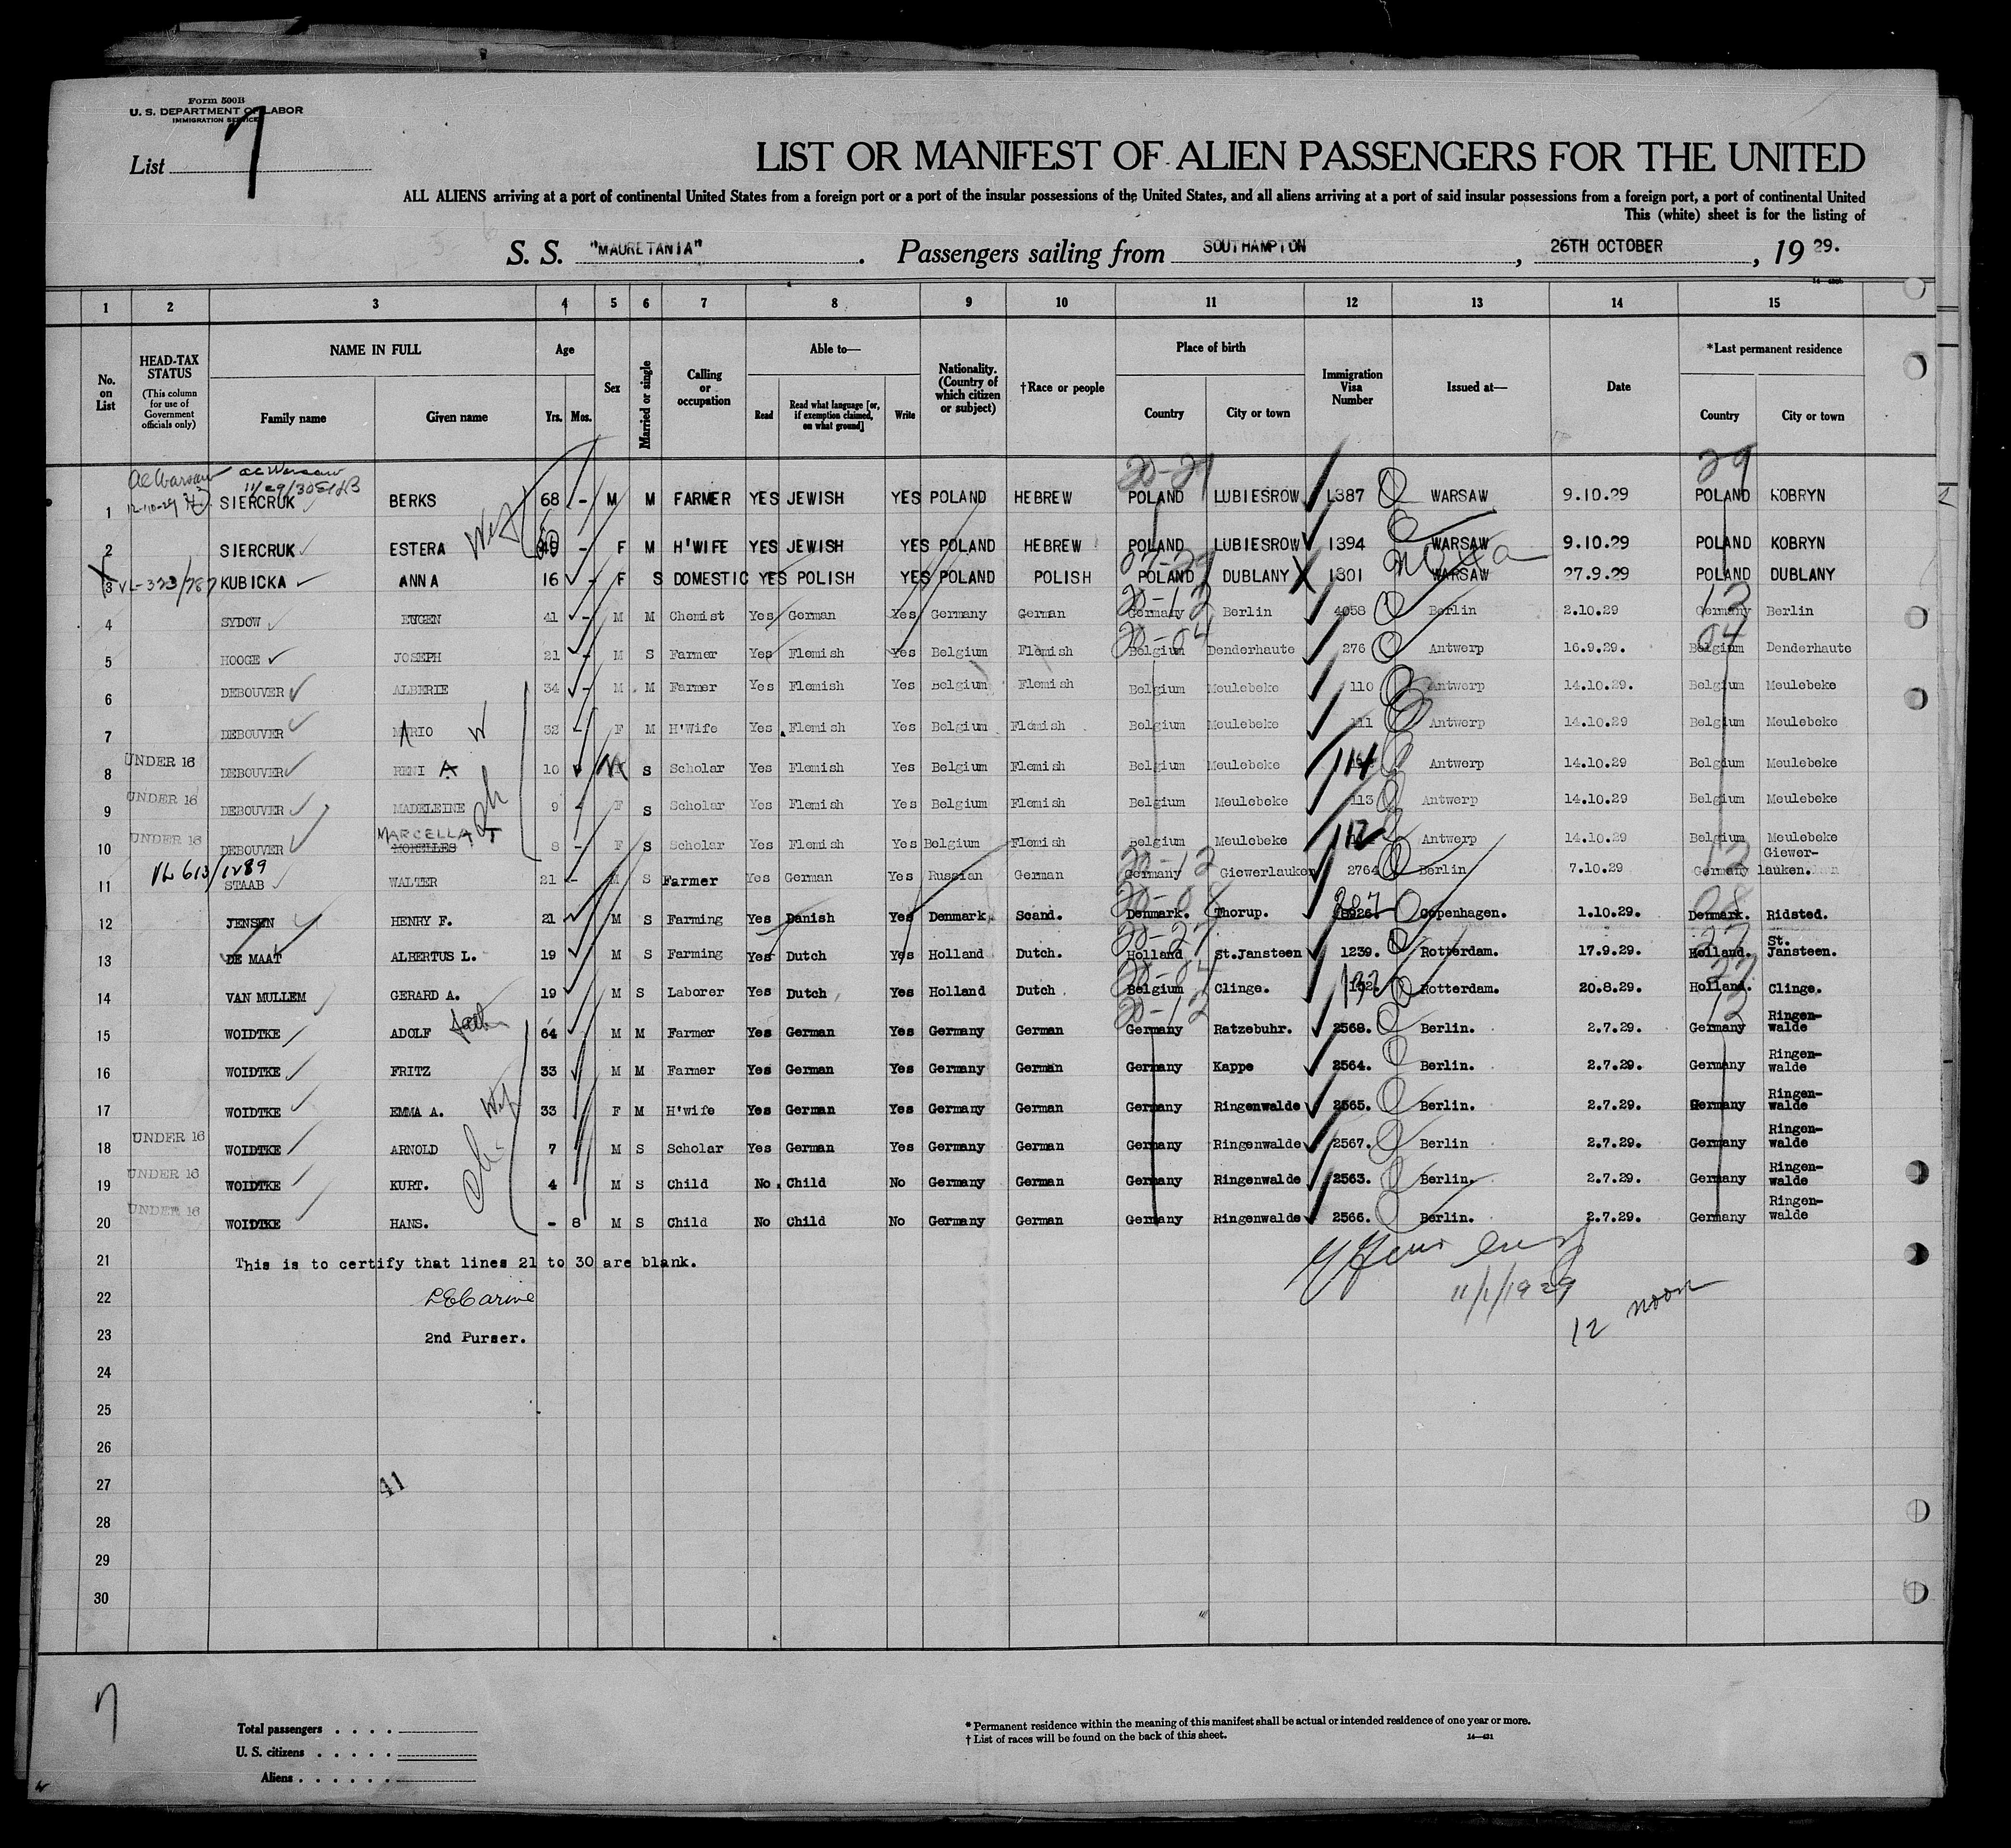 Form 500B
U. S. DEPARTMENT OF LABOR
IMMIGRATION SERVICE
List 7
LIST OR MANIFEST OF ALIEN PASSENGERS FOR THE UNITED
ALL ALIENS arriving at a port of continental United States from a foreign port or a port of the insular possessions of the United States, and all aliens arriving at a port of said insular possessions from a foreign port, a port of continental United
This (white) sheet is for the listing of
S. S. "MAURETANIA". Passengers sailing from SOUTHAMPTON, 26TH OCTOBER, 19 29.
1 2 3 4 5 6 7 8 9 10 11 12 13 14 15
No. on List
HEAD-TAX STATUS (This column for use of Government officials only)
NAME IN FULL Family name Given name
Age Yrs. Mos.
Sex
Married or single
Calling or occupation
Able to— Read Read what language [or, if exemption claimed, on what ground] Write
Nationality. (Country of which citizen or subject)
†Race or people
Place of birth Country City or town
Immigration Visa Number
Issued at—
Date
*Last permanent residence Country City or town
ac Warsaw
20-29 29
1 SIERCRUK BERKS 68 - M M FARMER YES JEWISH YES POLAND HEBREW POLAND LUBIESROW 1387 WARSAW 9.10.29 POLAND KOBRYN
2 SIERCRUK ESTERA Wif - F M H'WIFE YES JEWISH YES POLAND HEBREW POLAND LUBIESROW 1394 WARSAW 9.10.29 POLAND KOBRYN
3 VL-323/787 KUBICKA ANNA 16 - F S DOMESTIC YES POLISH YES POLAND POLISH POLAND DUBLANY 1301 WARSAW 27.9.29 POLAND DUBLANY
20-12 12
4 SYDOW EUGEN 41 - M M Chemist Yes German Yes Germany German Germany Berlin 4058 Berlin 2.10.29 Germany Berlin
20-04 04
5 HOOGE JOSEPH 21 - M S Farmer Yes Flemish Yes Belgium Flemish Belgium Denderhaute 276 Antwerp 16.9.29. Belgium Denderhaute
6 DEBOUVER ALBERIE 34 - M M Farmer Yes Flemish Yes Belgium Flemish Belgium Meulebeke 110 Antwerp 14.10.29. Belgium Meulebeke
7 DEBOUVER MARIO W 32 - F M H'Wife Yes Flemish Yes Belgium Flemish Belgium Meulebeke 111 Antwerp 14.10.29 Belgium Meulebeke
8 UNDER 16 DEBOUVER RENI A 10 M S Scholar Yes Flemish Yes Belgium Flemish Belgium Meulebeke 114 Antwerp 14.10.29 Belgium Meulebeke
9 UNDER 16 DEBOUVER MADELEINE ch 9 F S Scholar Yes Flemish Yes Belgium Flemish Belgium Meulebeke 113 Antwerp 14.10.29 Belgium Meulebeke
MARCELLA T
10 UNDER 16 DEBOUVER MORELLES 8 - F S Scholar Yes Flemish Yes Belgium Flemish Belgium Meulebeke 112 Antwerp 14.10.29 Belgium Meulebeke
VL 613/1289
20-12 12
11 STAAB WALTER 21 - M S Farmer Yes German Yes Russian German Germany Giewerlauken 2764 Berlin 7.10.29 Germany Giewer-lauken.
20-08 08
12 JENSEN HENRY F. 21 M S Farming Yes Danish Yes Denmark. Scand. Denmark. Thorup. Copenhagen. 1.10.29. Denmark. Ridsted.
20-27 27
13 DE MAAT ALBERTUS L. 19 M S Farming Yes Dutch Yes Holland Dutch. Holland St.Jansteen 1239. Rotterdam. 17.9.29. Holland. St. Jansteen.
20-04 27
14 VAN MULLEM GERARD A. 19 M S Laborer Yes Dutch Yes Holland Dutch Belgium Clinge. 132 Rotterdam. 20.8.29. Holland. Clinge.
20-12 12
15 WOIDTKE ADOLF 64 M M Farmer Yes German Yes Germany German Germany Ratzebuhr. 2569. Berlin. 2.7.29. Germany Ringen-walde
16 WOIDTKE FRITZ 33 M M Farmer Yes German Yes Germany German Germany Kappe 2564. Berlin. 2.7.29. Germany Ringen-walde
17 WOIDTKE EMMA A. Wif 33 F M H'wife Yes German Yes Germany German Germany Ringenwalde 2565. Berlin. 2.7.29. Germany Ringen-walde
18 UNDER 16 WOIDTKE ARNOLD ch. 7 M S Scholar Yes German Yes Germany German Germany Ringenwalde 2567. Berlin 2.7.29. Germany Ringen-walde
19 UNDER 16 WOIDTKE KURT. 4 M S Child No. Child No Germany German Germany Ringenwalde 2563. Berlin. 2.7.29. Germany Ringen-walde
20 UNDER 16 WOIDTKE HANS. - 8 M S Child No Child No Germany German Germany Ringenwalde 2566. Berlin. 2.7.29. Germany Ringen-walde
21 This is to certify that lines 21 to 30 are blank.
22 11/1/1929
23 2nd Purser. 12 noon
24
25
26
27 41
28
29
30
7
Total passengers
U. S. citizens
Aliens
* Permanent residence within the meaning of this manifest shall be actual or intended residence of one year or more.
† List of races will be found on the back of this sheet.
14—431